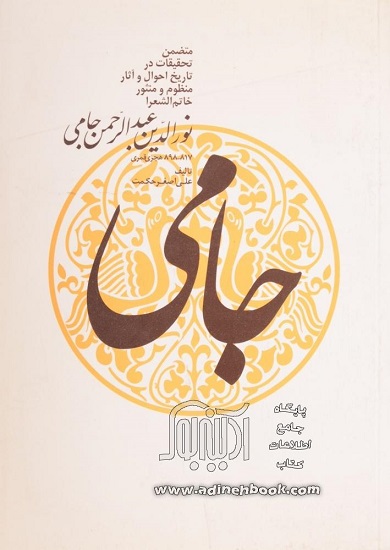 متضمن
تحقیقات در
تاریخ احوال و آثار
منظوم و منثور
خاتم الشعرا
نورالدین عبدالرحمن جامی
۸۱۷-۸۹۸ هجری قمری
تالیف
علی اصغر حکمت
جامی
آدینه بوک
پایگاه
جامع
اطلاعات
کتاب
www.adinehbook.com